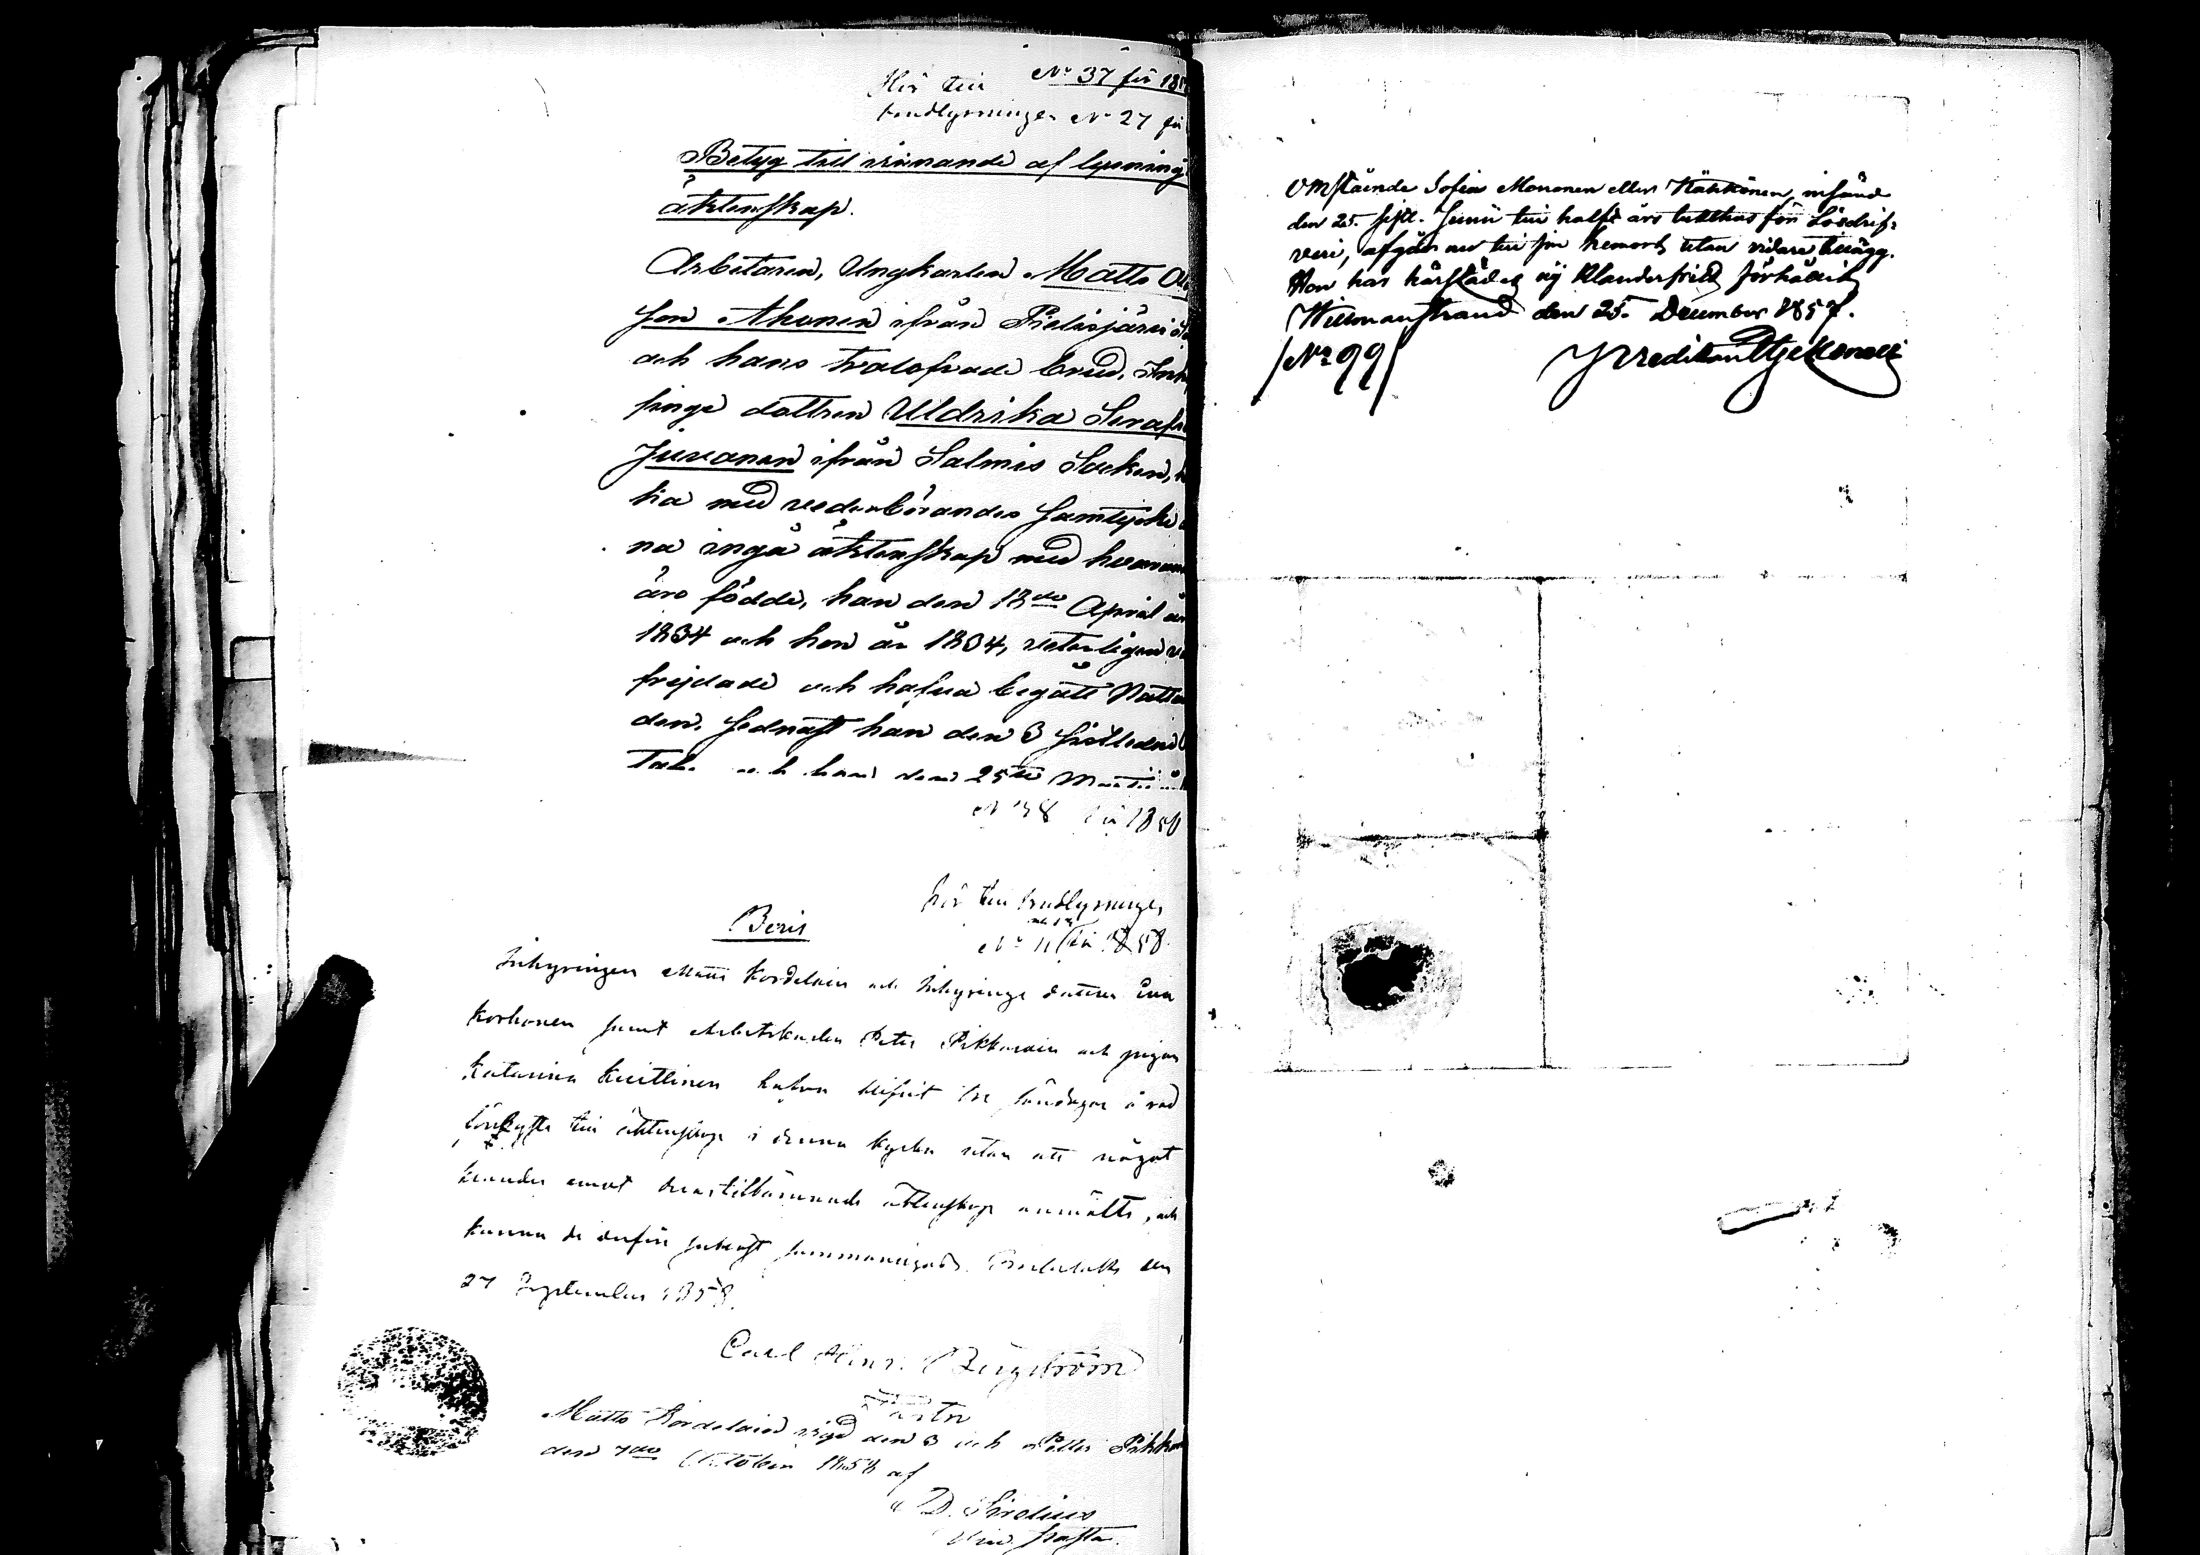 No 37 för 185
Hör till
brudlysningen No 27 för
Betyg till vinnande af lysning
äktenskap.
Arbetaren, Ungkarlen Matts
son Ahonen ifrån Pielisjärvi
och hans trolofvade brud, Inhy
singe dottren Uldrika Serafi
Juvonen ifrån Salmis Socken,
ka med vederbörandes samtycke
na ingå äktenskap med hvaran
äro födde, han den 18de April år
1834 och hon år 1834, veterligen
frejdade och hafva begått Natt
den, sednast han den 3 sistledne
och hon den 25te Martii
No 38 för 1858
hör till brudlysningen
No 11 för 1858
Bevis
Inhysingen Matts Kordelain och Inhysinge dottren Eva
Korhonen samt Arbetskarlen Peter Pikkarain och pigan
Katarina Kuittinen hafva blifvit tre söndagar å rad
lyste till äktenskap i denna kyrka utan att något
klander emot deras tillämnade äktenskap anmälts, och
kunna de derföre sammanvigas. den
27 September 1858.
Carl Henr. Bergström
Pastor
Matts Kordelain vigd den 3 och Petter Pikka
den 7de October 1858 af
D. Sirelius
Vice Pastor.
Omstående Sofia Mononen eller Häkkönen, insänd
den 25. sistl. Junii till halft års tukthus för Lösdrif-
veri, afgår nu till sin hemort utan vidare tillägg.
Hon har härstädes ej klanderfritt förhållit
Willmanstrand den 25. December 1857.
/No 99/